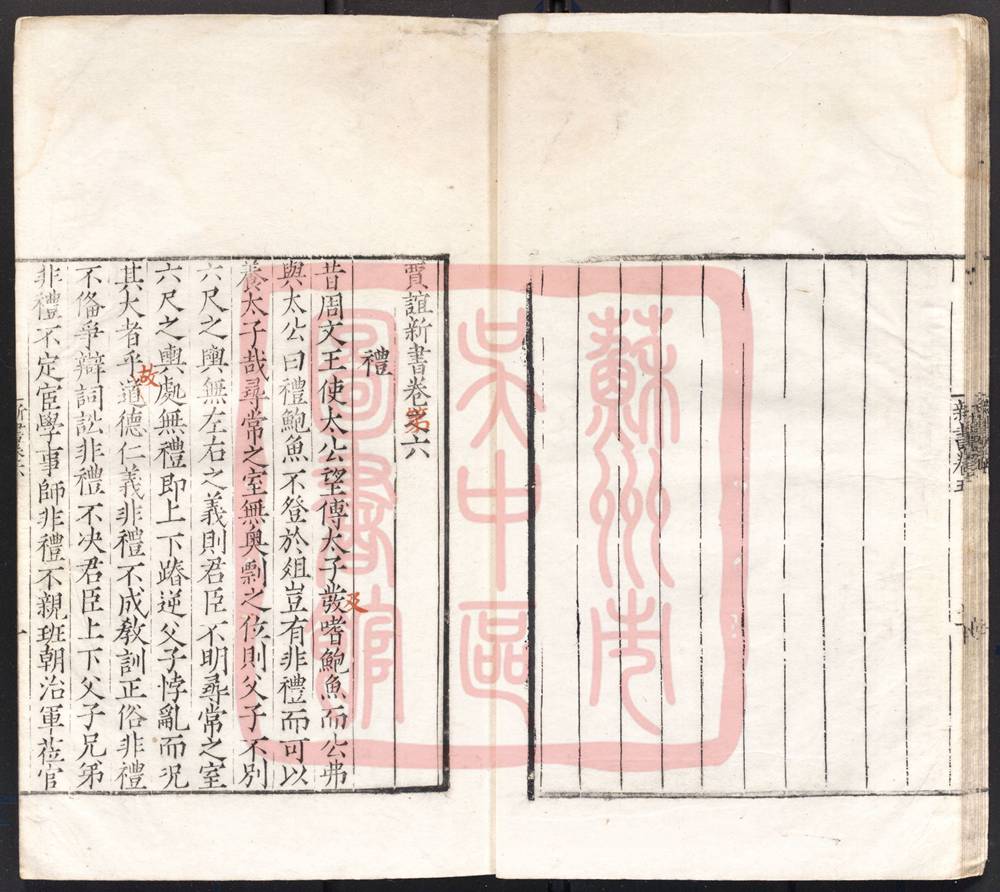 新書卷五
賈誼新書卷第六
禮
昔周文王使太公望傅太子發嗜鮑魚而公弗
與太公曰禮鮑魚不登於俎豈有非禮而可以
養太子哉尋常之室無奥剽之位則父子不别
六尺之輿無左右之義則君臣不明尋常之室
六尺之輿處無禮即上下踳逆父子悖亂而况
其大者乎道德仁義非禮不成敎訓正俗非禮
不俻爭辯訟非禮不决君臣上下父子兄弟
非禮不定宦學事師非禮不親班朝治軍莅官
故
及
蘇州市
吴中區
圖書館